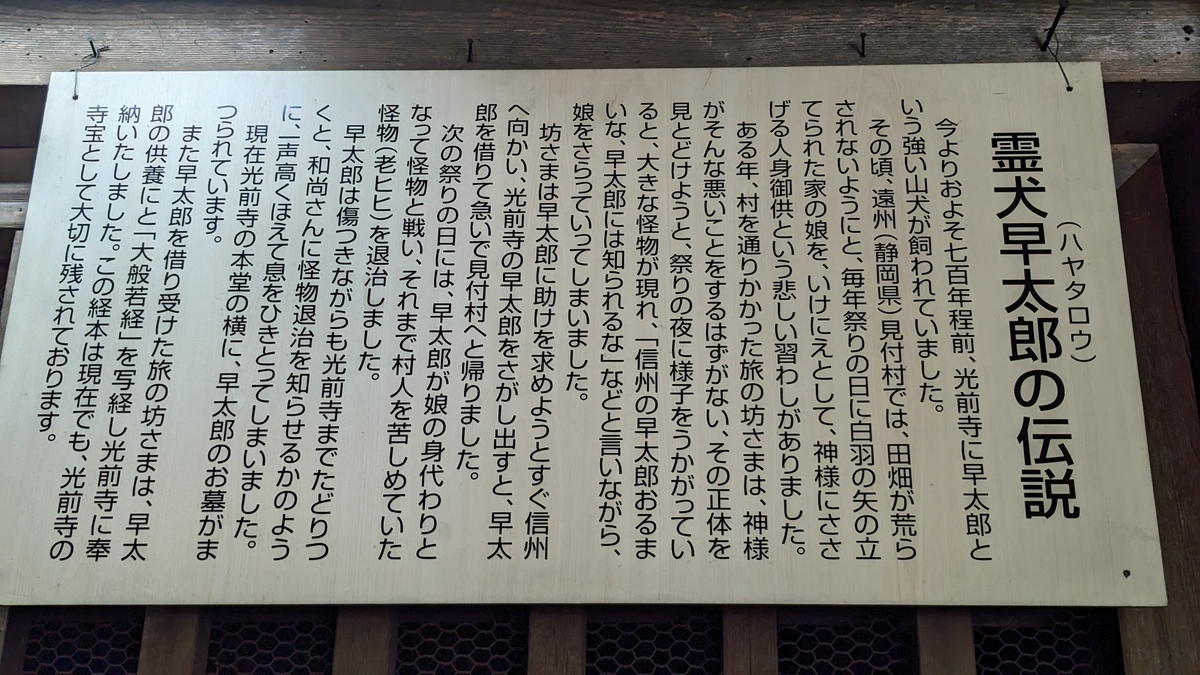 霊犬早太郎の伝説
（ハヤタロウ）
今よりおよそ七百年程前、光前寺に早太郎と
いう強い山犬が飼われていました。
その頃、遠州（静岡県）見付村では、田畑が荒ら
されないようにと、毎年祭りの日に白羽の矢の立
てられた家の娘を、いけにえとして、神様にささ
げる人身御供という悲しい習わしがありました。
ある年、村を通りかかった旅の坊さまは、神様
がそんな悪いことをするはずがない、その正体を
見とどけようと、祭りの夜に様子をうかがってい
ると、大きな怪物が現れ、「信州の早太郎おるま
いな、早太郎には知られるな」などと言いながら、
娘をさらっていってしまいました。
坊さまは早太郎に助けを求めようとすぐ信州
へ向かい、光前寺の早太郎をさがし出すと、早太
郎を借りて急いで見付村へと帰りました。
次の祭りの日には、早太郎が娘の身代わりと
なって怪物と戦い、それまで村人を苦しめていた
怪物（老ヒヒ）を退治しました。
早太郎は傷つきながらも光前寺までたどりつ
くと、和尚さんに怪物退治を知らせるかのよう
に、一声高くほえて息をひきとってしまいました。
現在光前寺の本堂の横に、早太郎のお墓がま
つられています。
また早太郎を借り受けた旅の坊さまは、早太
郎の供養にと「大般若経」を写経し光前寺に奉
納いたしました。この経本は現在でも、光前寺の
寺宝として大切に残されております。